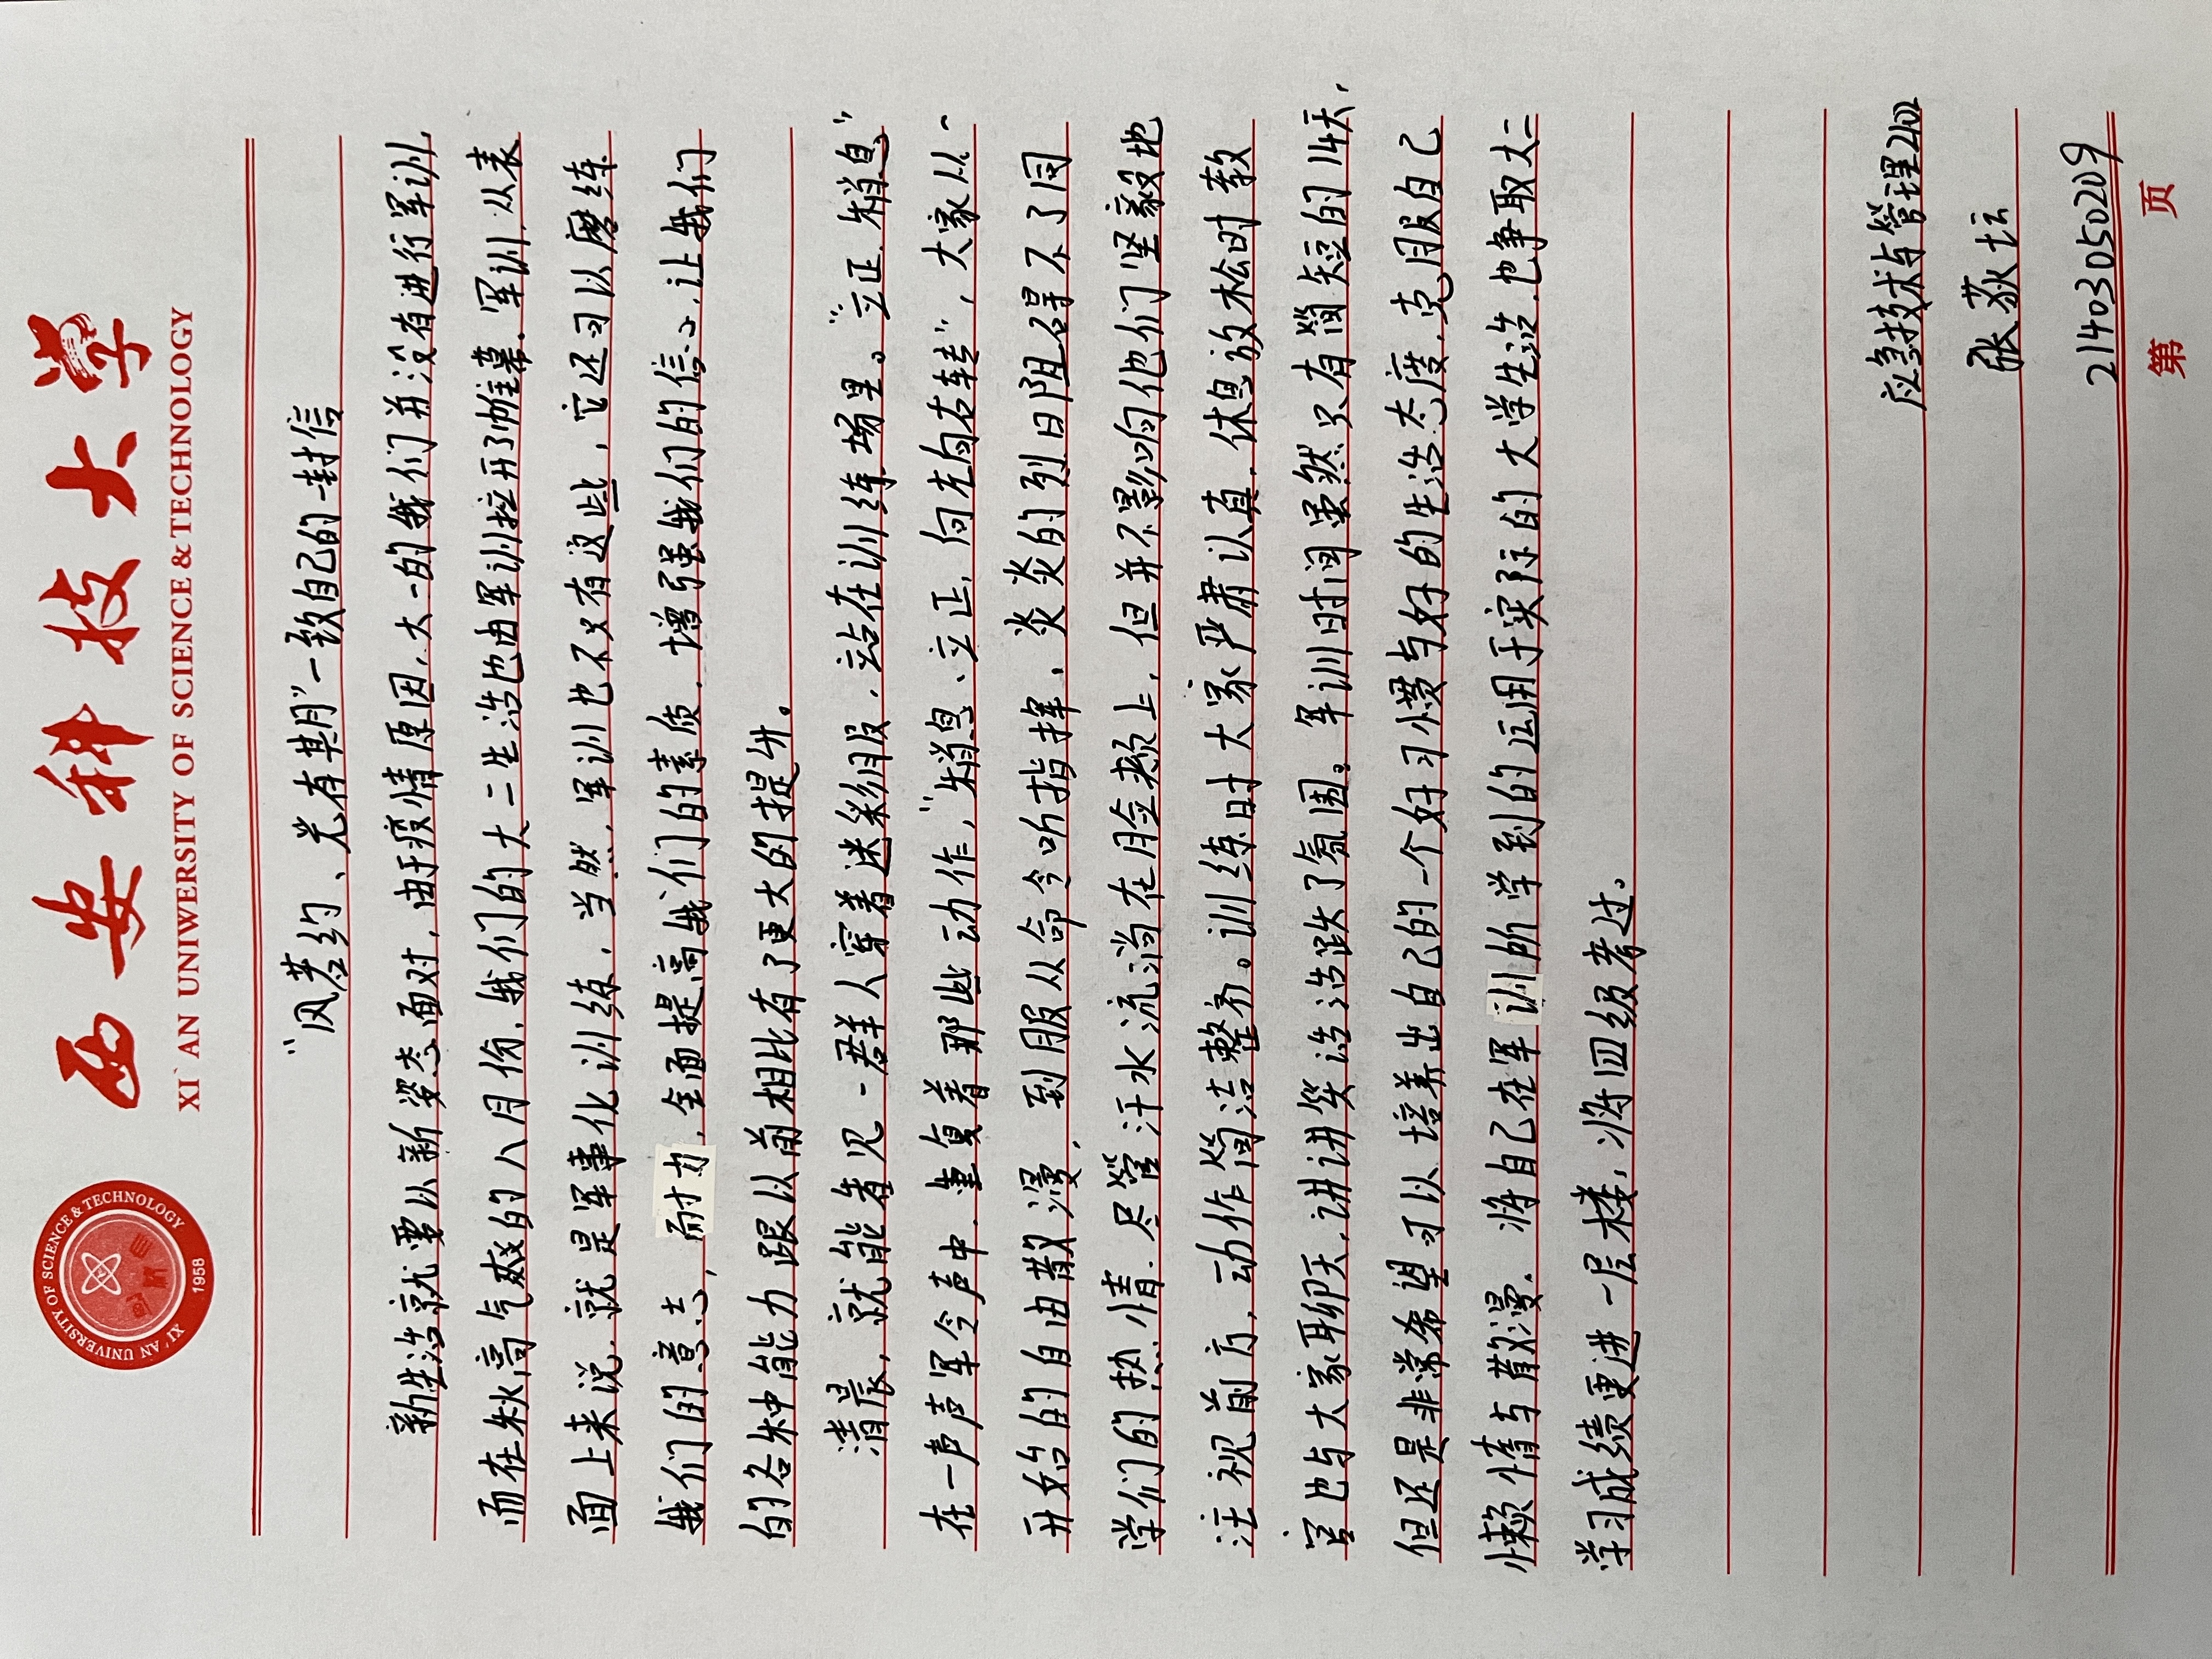 西安科技大学
XI`AN UNIWERSITY OF SCIENCE & TECHNOLOGY
XI'AN UNIVERSITY OF SCIENCE & TECHNOLOGY
1958
“风若约、光有其月”一致自己的一封信
新生活就要以新姿态面对，由于疫情原因，大一的我们并没有进行军训，
而在秋高气爽的八月份，我们的大二生活也由军训拉开了帷幕。军训，从表
面上来说，就是军事化训练，当然，军训也不只有这些，它还可以磨练
我们的意志，耐力，全面提高我们的素质，增强我们的信心，让我们
的各种能力跟以前相比有了更大的提升。
清晨，就能看见一群人穿着迷彩服，站在训练场里。“立正，稍息”
在一声声军令声中，重复着那些动作，“稍息、立正，向左向右转”，大家从一
开始的自由散漫，到服从命令听指挥，炎炎的烈日阻碍不了同
学们的热情，尽管汗水流淌在脸颊上，但并不影响他们坚毅地
注视前方，动作简洁整齐。训练时大家严肃认真，休息放松时教
官也与大家聊天，讲讲笑话活跃了氛围。军训时间虽然只有简短的14天，
但还是非常希望可以培养出自己的一个好习惯与好的生活态度，克服自己
懒惰与散漫，将自己在军训所学到的运用于实际的大学生活，也争取大二
学习成绩更进一层楼，将四级考过。
应急技术与管理2102
张荻坛
21403050209
第 页